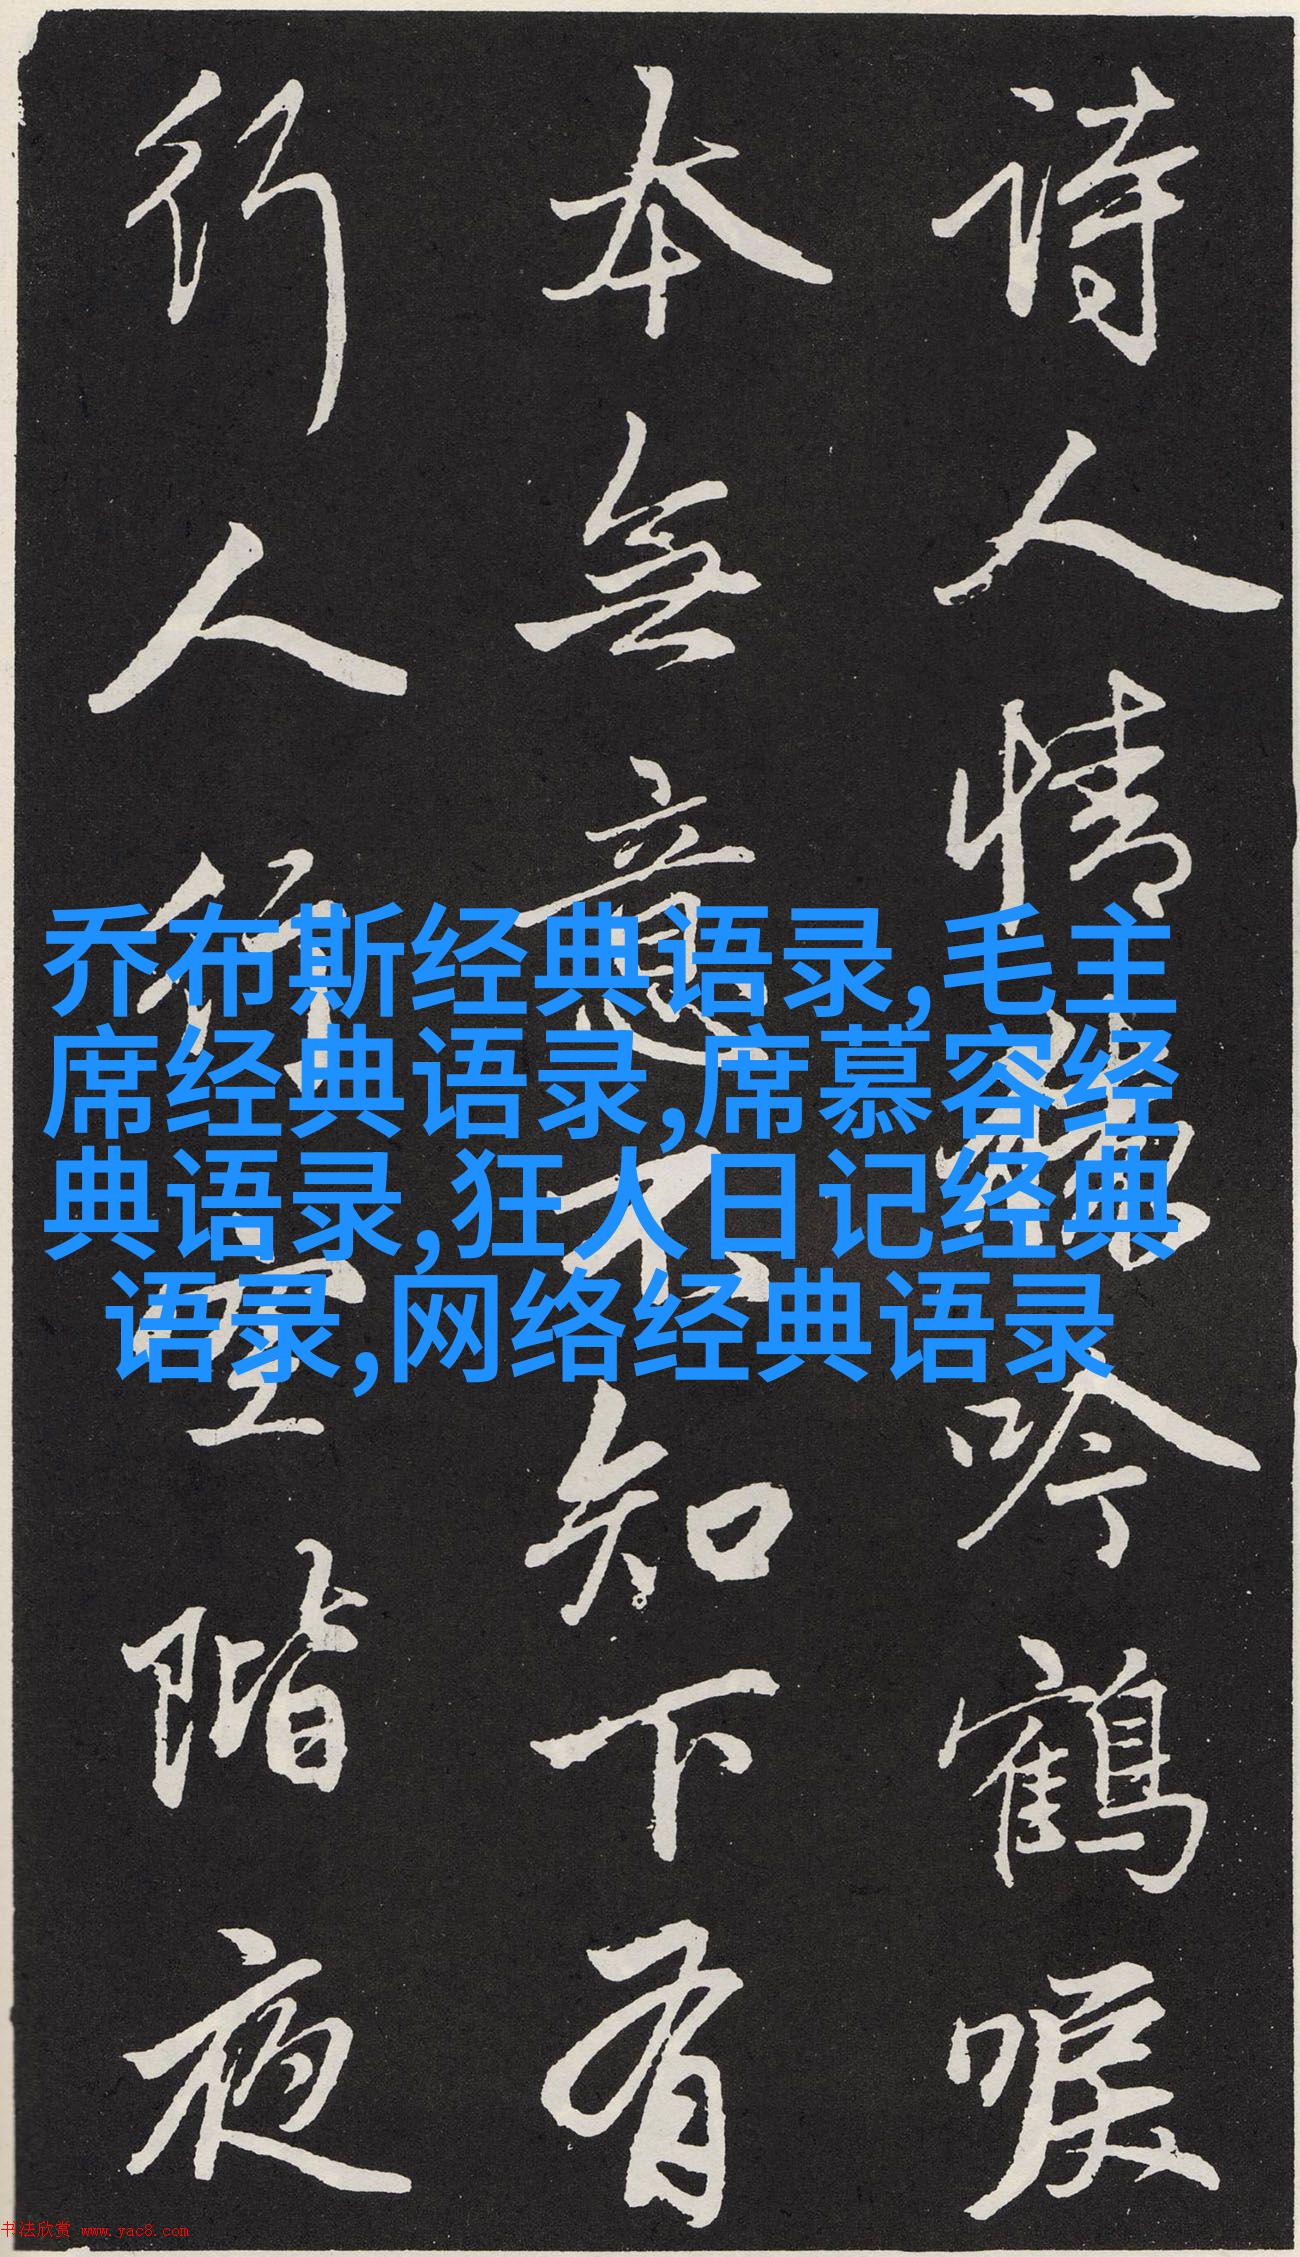 詩人情吟鶴唳
本無意不知下有
行人行空階夜
乔布斯经典语录,毛主
席经典语录,席慕容经
典语录,狂人日记经典
语录,网络经典语录
书法欣赏 www.yac8.com